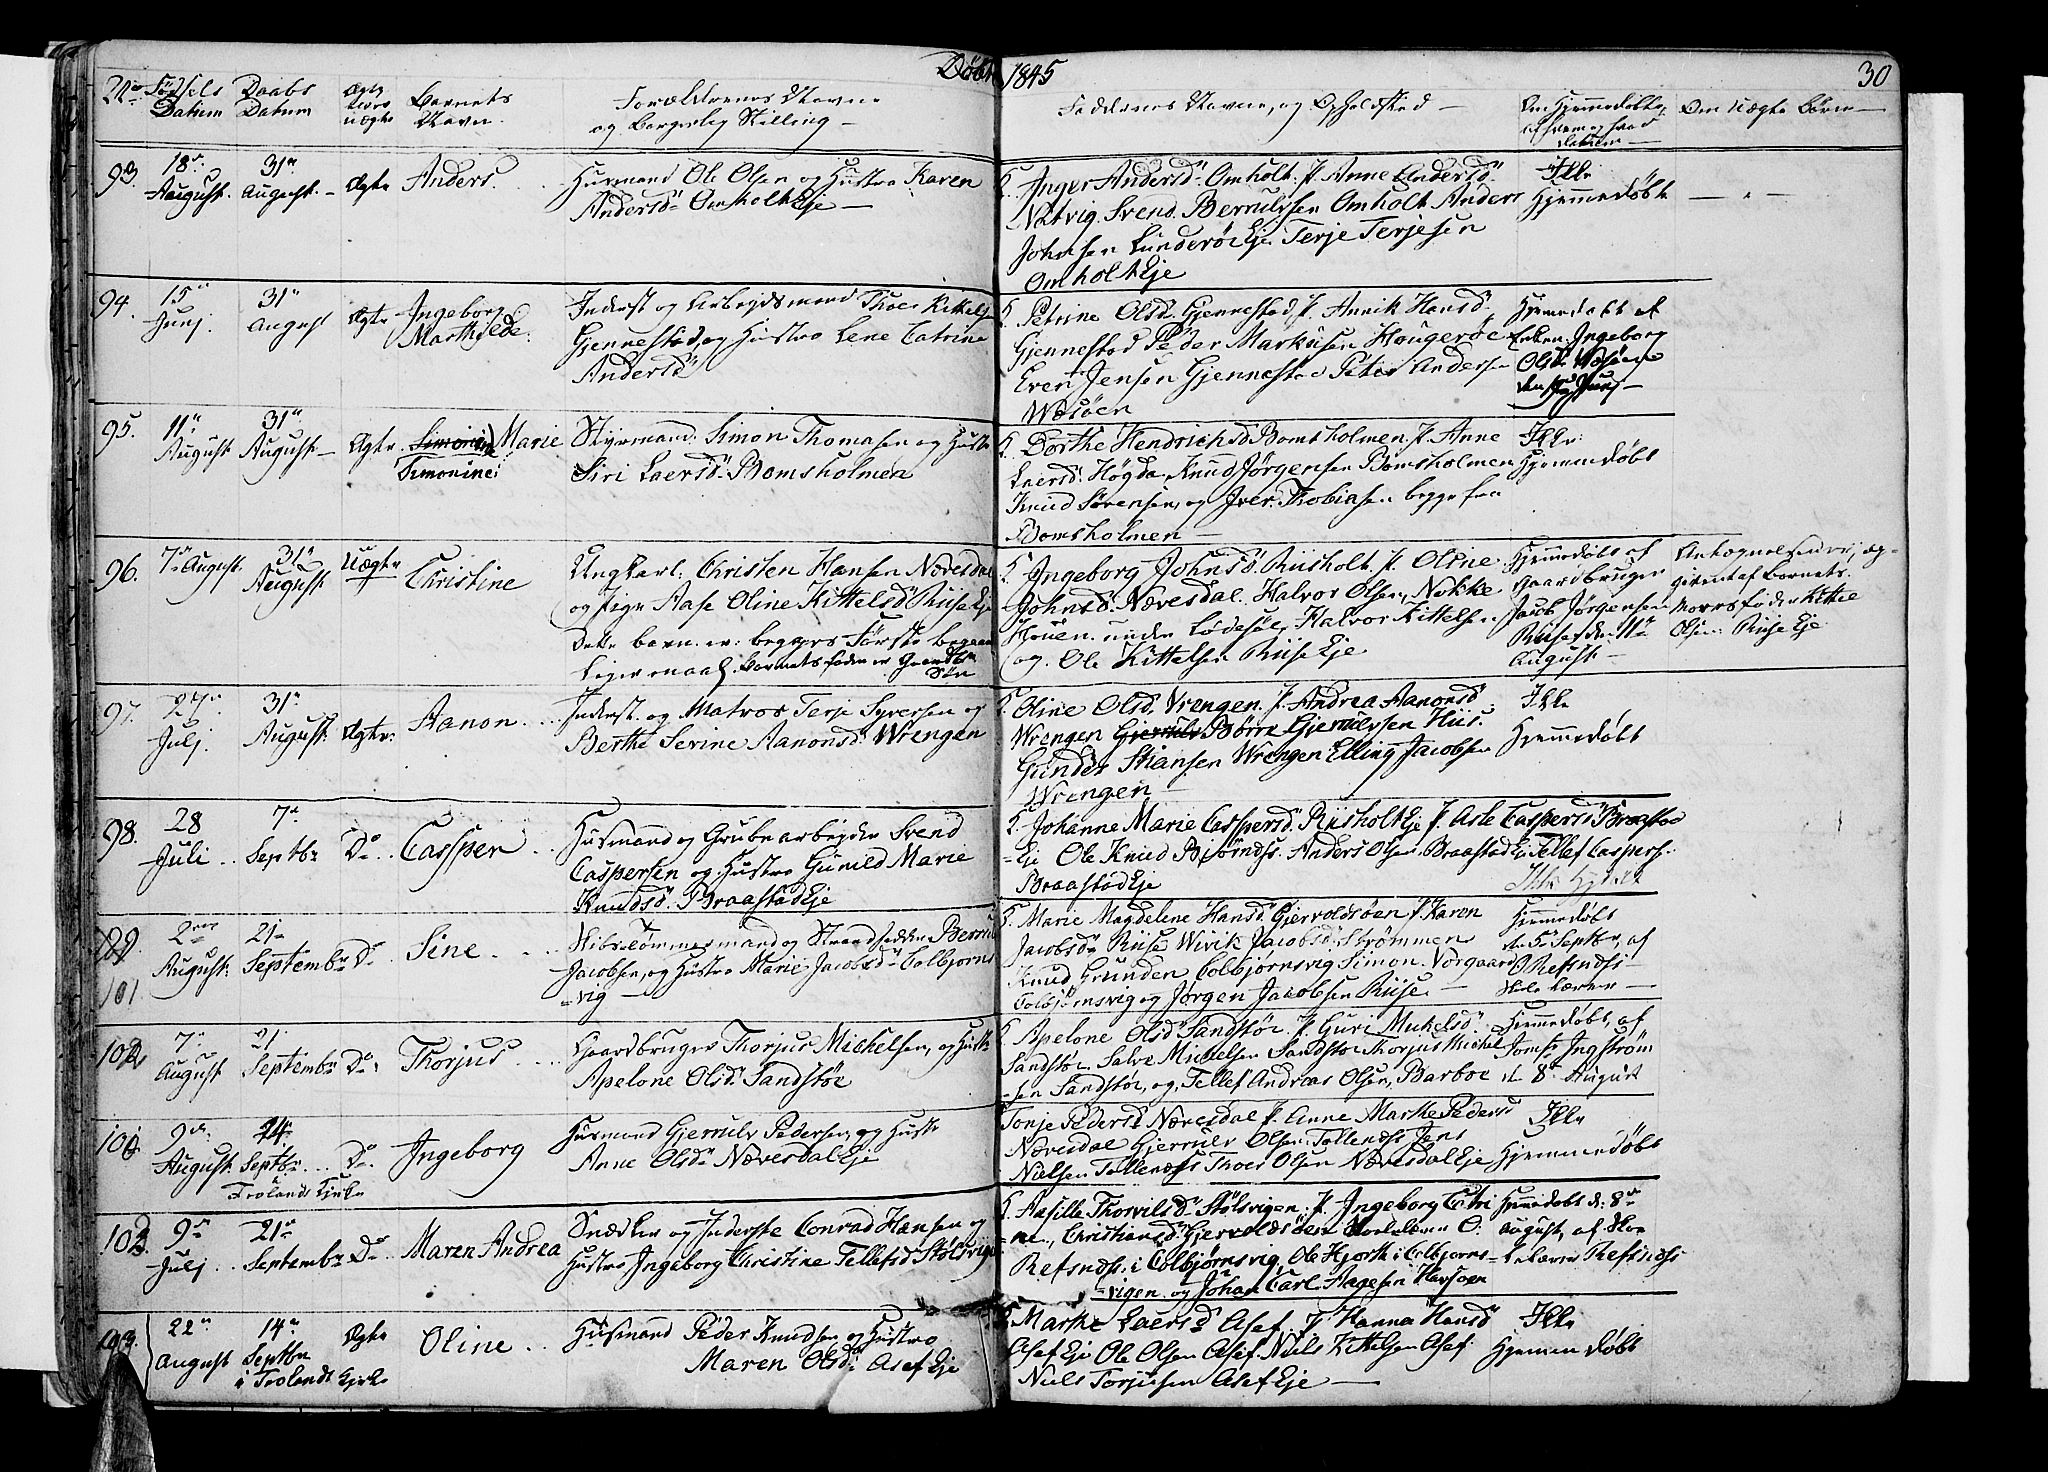 Døbte 1845
30
No Fødsels Datum
Daabs Datum
Ægte eller uægte
Barnets Navn
Forældrenes Navne og Borgerlig Stilling
Faddernes Navne, og Opholdsted
Om Hjemmedøbt, af hvem og hvad Datum
Om Uægte Børn
93. 18de August. 31te August Ægte Anders.
Huusmand Ole Olsen og Hustro Karen
Andersd. OmholtEje
Inger Andersd. Omholt. P. Anne Andersd.
Natvig. Svend Berrulvsen Omholt Anders
Johnsen Lunderøe Eje Terje Terjesen
OmholtEje
Ikke
Hjemmedøbt
94. 15de Junj. 31te August Ægte Ingeborg
Marthilde.
Inderst og Arbejdsmand Thor Kittels.
Gjennestad, og Hustro Lene Catrine
Andersd
Petrine Olsd. Gjennestad, P. Annik Hansd.
Gjennestad Peder Markusen Hougerøe
Even Jensen Gjennestad Peter Andersen
Wæsøen
Hjemmedøbt af
Enken Ingeborg
Olsd. Wæsøen
den Junj
95. 11te August 31te August Ægte Simonine Marie
Simonine
Styrmand: Simon Thomasen og Hustro
Siri Laersd. Bomsholmen
Dorthe Hendrichsd Bomsholmen. P. Anne
Laersd. Høgda. Knud Jørgensen Bomsholmen
Knud Sørensen, og Iver Thobiasen begge fra
Bomsholmen
Ikke
Hjemmedøbt
96. 7de August. 31te August Uægte Christine
Ungkarl: Christen Hansen Nævesdal
og Pige Aase Oline Kittelsd RiiseEje
Dette barn er begges Første begaaede
Leiermaal. Barnets fader er Gaardbr.
Søn
Ingeborg Johnsd. Riisholt. P. Oline
Johnsd. Nævesdal. Halvor Olsen, Nokke
Houen under Lødesøl, Halvor Kittelsen
og Ole Kittelsen RiiseEje
Hjemmedøbt af
gaardbruger
Jacob Jørgensen
Riise den 11te
August
givent af barnets
Morsfader Kittel
Olsen RiiseEje
97. 27de Julj. 31te August. Ægte Aanon
Inderst og Matros Terje Syversen og
Berthe Serine Aanonsd. Wrengen
Oline Olsd. Wrengen. P. Andrea Aanonsd.
Wrengen Gjerrulv Børre Gjerrulvsen Hiis.
Gunder Stiansen Wrengen Elling Jacobsen
Wrengen
Ikke
Hjemmedøbt
98. 28 Juli 7de Septbr Do Casper
Husmand og Grubearbejder Svend
Caspersen og Hustro Gunild Marie
Knudsd. BraastadEje
Johanne Marie Caspersd. RiisholtEje P. Asle Caspersd. Braastad
Eje Ole Knud Bjørnds. Anders Olsen BraastadEje Tellef Caspers.
BraastadEje
Ikke Hjdøbt
101 2den August. 21de September Do Sine
Skibstømmermand og Strandsidder Berrul
Jacobsen, og Hustro Marie Jacobsd. Colbjørns
vig
Marie Magdelene Hansd. Gjervoldsøen P. Karen
Jacobsd. Riise Wivik Jacobsd. Strømmen
Knud Grunden Colbjørnsvig Simon Vorgaard
Colbjørnsvig og Jørgen Jacobsen Riise
Hjemmedøbt
d. 5 Septbr, af
O Refsnds
Skolelærer
102 7de August 21 September Do Thorjus
Gaardbruger Thorjus Michelsen, og Hustro
Apelone Olsd. Sandstøe
Apelone Olsd. Sandstøe P. Guri Mickelsd.
Sandstøe, Salve Michelsen Sandstøe Thorjus Michel
sen Sandstøe, og Tellef Andreas Olsen, Barboe
Hjemmedøbt, af
Jomfr Ingstrøm
d. 8de August
100 9de August 14 Septbr Do Ingeborg
Frolands Kirke
Husmand Gjerrulv Pedersen, og Hustro
Anne Olsd. NævesdalEje
Tonje Pedersd Nævesdal P. Anne Marthe Pedersd
Nævesdal Gjerrulv Olsen Tellenæs Jens
Nielsen Tellenæs Thoer Olsen NævesdalEje
Ikke
Hjemmedøbt
103 9de Julj 21de September Do Maren Andrea
Snedker og Inderste Conrad Hansen og
Hustro Ingeborg Christine Tellefsd Stølsvigen
Aasille Thorvilsd. Stølsvigen P. Ingeborg Catri
ne, Christiansd. Gjervoldsøen Skolelærer O.
Refsnds. i Colbjørnsvig, Ole Hjorth i Colbjørns
vigen og Johan Carl Aagesen Havsøen
Hjemmedøbt d: 8de
August, af Sko
lelærer Refsnds
22de August 14de Septbr i Frolands Kirke Ægte Oline
Husmand Peder Knudsen og Hustro
Maren Olsd. AsefEje
Marthe Laersd Asef. P. Hanna Hansd
AsefEje Ole Olsen Asef. Niels Kittelsen Asef.
Niels Torjusen AsefEje
Ikke
Hjemmedøbt